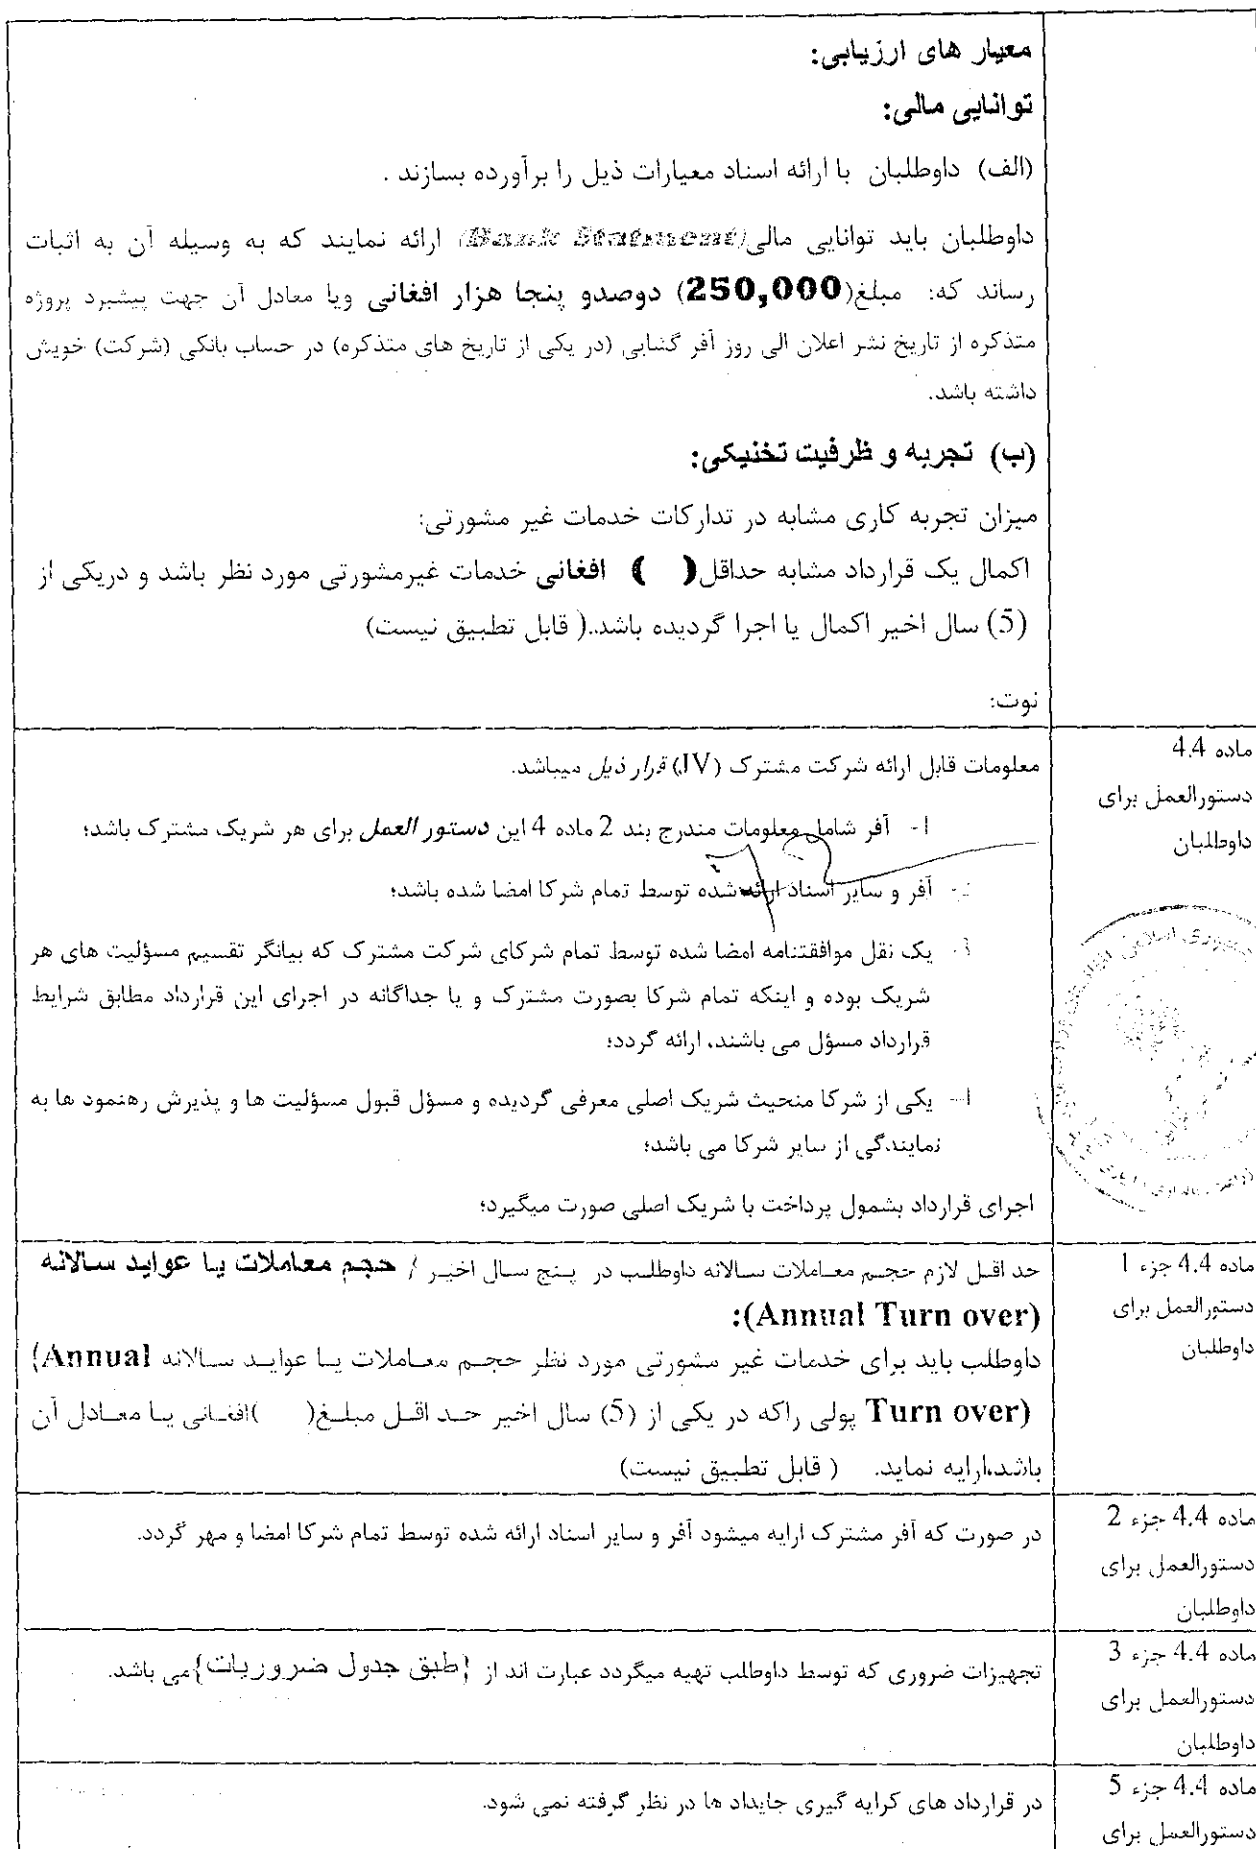 معیار های ارزیابی:
توانایی مالی:
(الف) داوطلبان با ارائه اسناد معیارات ذیل را برآورده بسازند .
داوطلبان باید توانایی مالی(Bank Statment) ارائه نمایند که به وسیله آن به اثبات
رساند که: مبلغ(250,000) دوصدو پنجا هزار افغانی ویا معادل آن جهت پیشبرد پروژه
متذکره از تاریخ نشر اعلان الی روز آفر گشایی (در یکی از تاریخ های متذکره) در حساب بانکی (شرکت) خویش
داشته باشد.
(ب) تجربه و ظرفیت تخنیکی:
میزان تجربه کاری مشابه در تدارکات خدمات غیر مشورتی:
اکمال یک قرارداد مشابه حداقل( ) افغانی خدمات غیرمشورتی مورد نظر باشد و دریکی از
(5) سال اخیر اکمال یا اجرا گردیده باشد..( قابل تطبیق نیست)
نوت:
ماده 4.4
دستورالعمل برای
داوطلبان
معلومات قابل ارائه شرکت مشترک (JV) قرار ذیل میباشد.
آفر شامل معلومات مندرج بند 2 ماده 4 این دستور العمل برای هر شریک مشترک باشد؛
آفر و سایر اسناد ارائه شده توسط تمام شرکا امضا شده باشد؛
یک نقل موافقتنامه امضا شده توسط تمام شرکای شرکت مشترک که بیانگر تقسیم مسؤلیت های هر
شریک بوده و اینکه تمام شرکا بصورت مشترک و یا جداگانه در اجرای این قرارداد مطابق شرایط
قرارداد مسؤل می باشند، ارائه گردد؛
یکی از شرکا منحیث شریک اصلی معرفی گردیده و مسؤل قبول مسؤلیت ها و پذیرش رهنمود ها به
نمایندگی از سایر شرکا می باشد؛
اجرای قرارداد بشمول پرداخت با شریک اصلی صورت میگیرد؛
ماده 4.4 جزء 1
دستورالعمل برای
داوطلبان
حد اقل لازم حجم معاملات سالانه داوطلب در پنج سال اخیر / حجم معاملات یا عواید سالانه
(Annual Turn over):
داوطلب باید برای خدمات غیر مشورتی مورد نظر حجم معاملات یا عواید سالانه (Annual
Turn over) پولی راکه در یکی از (5) سال اخیر حد اقل مبلغ( )افغانی یا معادل آن
باشد،ارایه نماید. ( قابل تطبیق نیست)
ماده 4.4 جزء 2
دستورالعمل برای
داوطلبان
در صورت که آفر مشترک ارایه میشود آفر و سایر اسناد ارائه شده توسط تمام شرکا امضا و مهر گردد.
ماده 4.4 جزء 3
دستورالعمل برای
داوطلبان
تجهیزات ضروری که توسط داوطلب تهیه میگردد عبارت اند از {طبق جدول ضروریات}می باشد.
ماده 4.4 جزء 5
دستورالعمل برای
در قرارداد های کرایه گیری جایداد ها در نظر گرفته نمی شود.